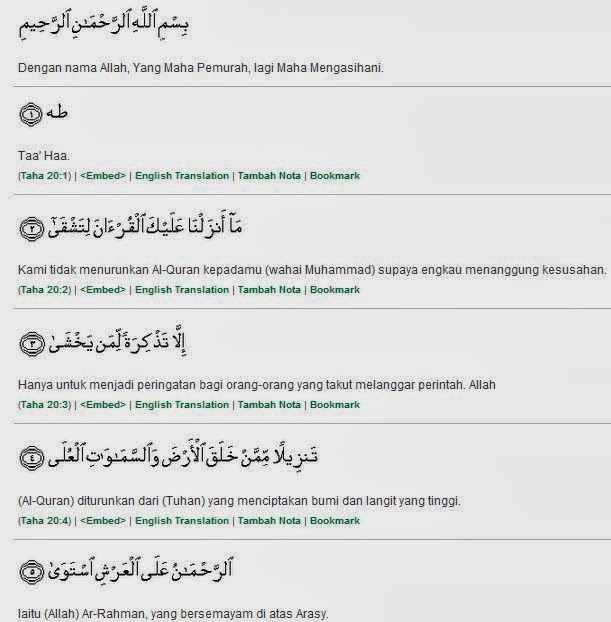 بِسْمِ ٱللَّهِ ٱلرَّحْمَـٰنِ ٱلرَّحِيمِ
Dengan nama Allah, Yang Maha Pemurah, lagi Maha Mengasihani.
طه ١
Taa' Haa.
(Taha 20:1) | <Embed> | English Translation | Tambah Nota | Bookmark
مَآ أَنزَلْنَا عَلَيْكَ ٱلْقُرْءَانَ لِتَشْقَىٰٓ ٢
Kami tidak menurunkan Al-Quran kepadamu (wahai Muhammad) supaya engkau menanggung kesusahan.
(Taha 20:2) | <Embed> | English Translation | Tambah Nota | Bookmark
إِلَّا تَذْكِرَةً لِّمَن يَخْشَىٰ ٣
Hanya untuk menjadi peringatan bagi orang-orang yang takut melanggar perintah. Allah
(Taha 20:3) | <Embed> | English Translation | Tambah Nota | Bookmark
تَنزِيلًا مِّمَّنْ خَلَقَ ٱلْأَرْضَ وَٱلسَّمَـٰوَٰتِ ٱلْعُلَى ٤
(Al-Quran) diturunkan dari (Tuhan) yang menciptakan bumi dan langit yang tinggi.
(Taha 20:4) | <Embed> | English Translation | Tambah Nota | Bookmark
ٱلرَّحْمَـٰنُ عَلَى ٱلْعَرْشِ ٱسْتَوَىٰ ٥
Iaitu (Allah) Ar-Rahman, yang bersemayam di atas Arasy.